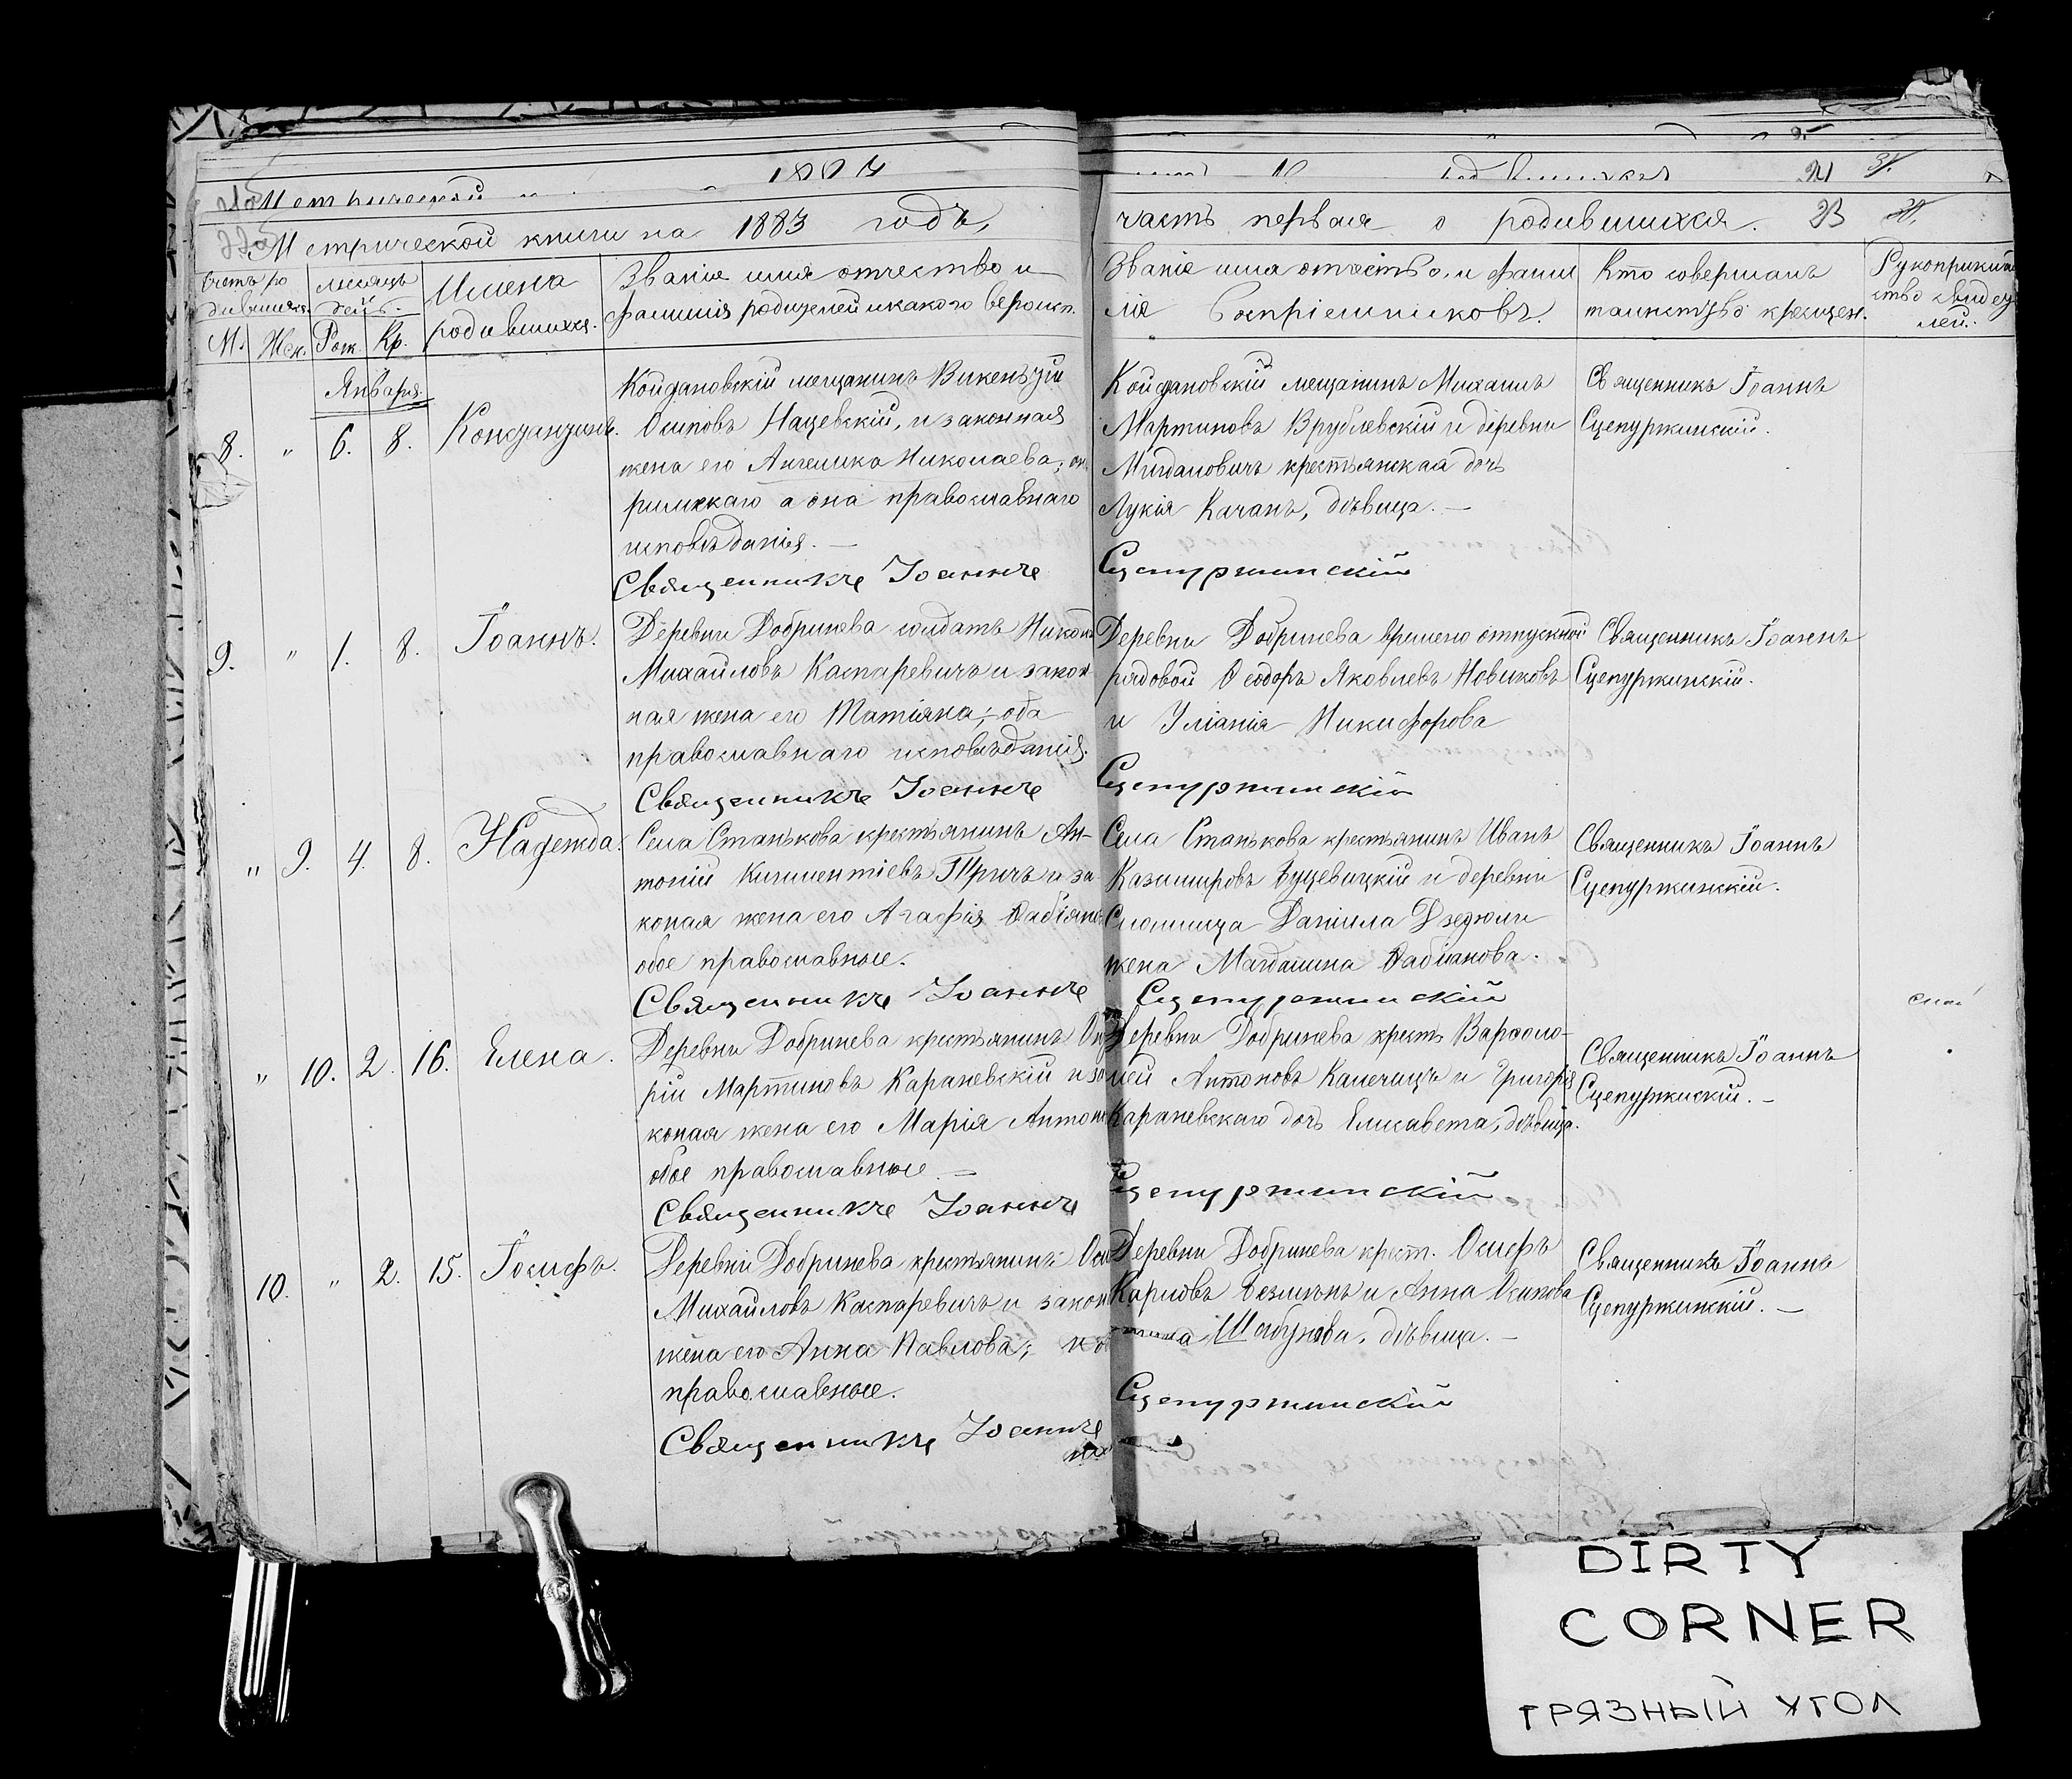 1884
Метрической
Метрической книги на 1883 годъ,
часть первая о родившихся. 23
Счетъ ро
дившихся.
мѣсяцъ
день.
М. Жен. Рож. Кр.
Имена
родившихся.
Званіе имя отчество и
фамилія родителей и какого вѣроисп.
Званіе имя отчество, и фами
лія Воспріемниковъ.
Кто совершалъ
таинство крещен.
Рукоприклад
ство свидѣте
лей.
Января
8. " 6. 8. Константинъ.
Койдановскій мещанинъ Викентій
Осиповъ Нацевскій, и законная
жена его Ангелика Николаева; онъ
римскаго а она православнаго
исповѣданія. —
Койдановскій мещанинъ Михаилъ
Мартиновъ Врублевскій и деревни
Мигдаловичъ крестьянская дочь
Лукія Качанъ, дѣвица. —
Священникъ Іоаннъ
Сцепуржинскій.
Священникъ Іоаннъ Сцепуржинскій
9. " 1. 8. Іоаннъ.
Деревни Добринева солдатъ Никол
Михайловъ Каспаревичъ и закон
ная жена его Татіяна; оба
православнаго исповѣданія.
Деревни Добринева времено отпускной
рядовой Ѳеодоръ Яковлевъ Новиковъ
и Уліанія Никифорова
Священникъ Іоаннъ
Сцепуржинскій.
Священникъ Іоаннъ Сцепуржинскій
" 9. 4. 8. Надежда.
Села Станькова крестьянинъ Ан-
тоній Климентіевъ Гричъ и за-
коная жена его Агафія Фабіяно
обое православные.
Села Станькова крестьянинъ Иванъ
Казимировъ Буцевицкій и деревни
Даніила Дзедюли
жена Магдалина Фабіанова.
Священникъ Іоаннъ
Сцепуржинскій.
Священникъ Іоаннъ Сцепуржинскій
" 10. 2. 16. Елена.
Деревни Добринева крестьянинъ
рій Мартиновъ Караневскій и за
коная жена его Марія Антон
обое православные —
Деревни Добринева крест. Варѳоло-
мей Антоновъ Капечицъ и Григорія
Караневскаго дочь Елисавета, дѣвица.
Священникъ Іоаннъ
Сцепуржискій. —
Священникъ Іоаннъ Сцепуржинскій
10. " 2. 15. Іосифъ.
Деревни Добринева крестьянинъ Оси
Михайловъ Каспаревичъ и закон
жена его Анна Павлова;
православные.
Деревни Добринева крест. Осифъ
Карповъ и Анна Осипова
Шабунова, дѣвица. —
Священникъ Іоаннъ
Сцепуржинскій. —
Священникъ Іоаннъ Сцепуржинскій
DIRTY
CORNER
ГРЯЗНЫЙ УГОЛ